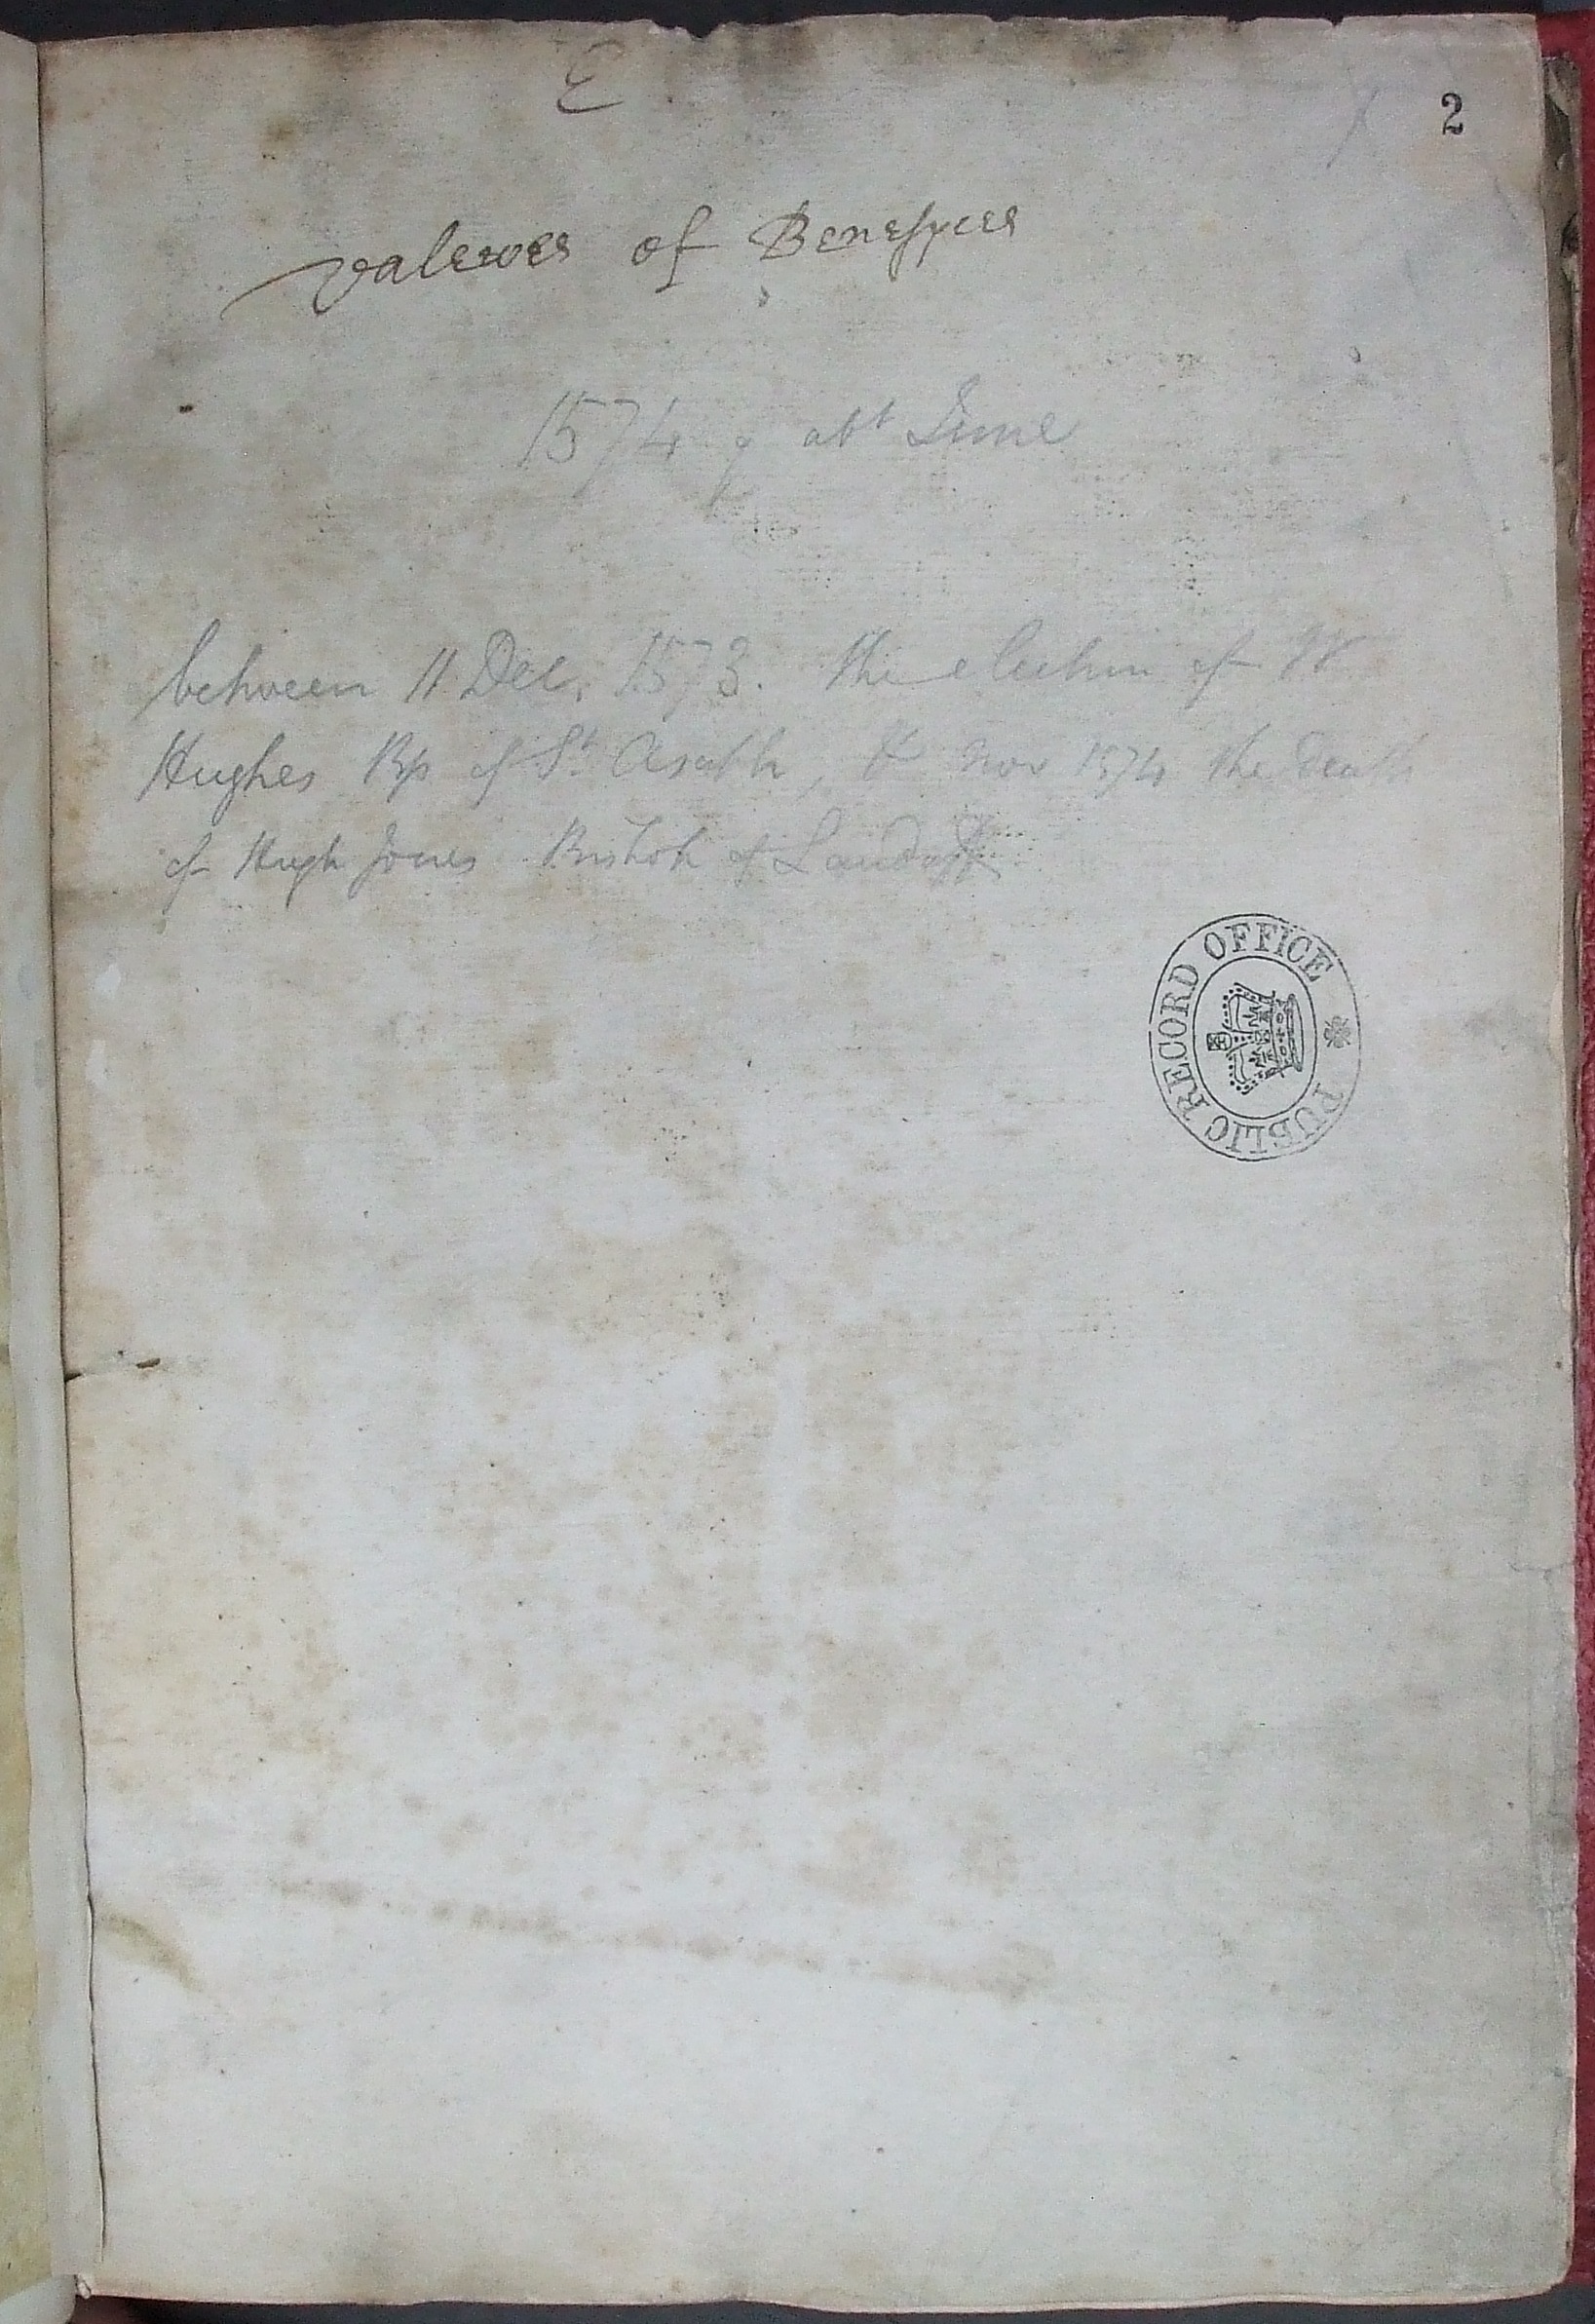 E
2
Valewes of Benefyces
1574 ? abt June
between 11 Dec. 1573. the election of W
Hughes Bp of St Asaph, & Nov 1574 the death
of Hugh Jones Bishop of Landaff
PUBLIC RECORD OFFICE